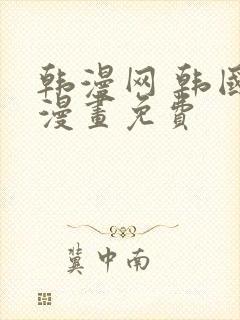 韩漫网 韩國
漫畫免费
冀中南